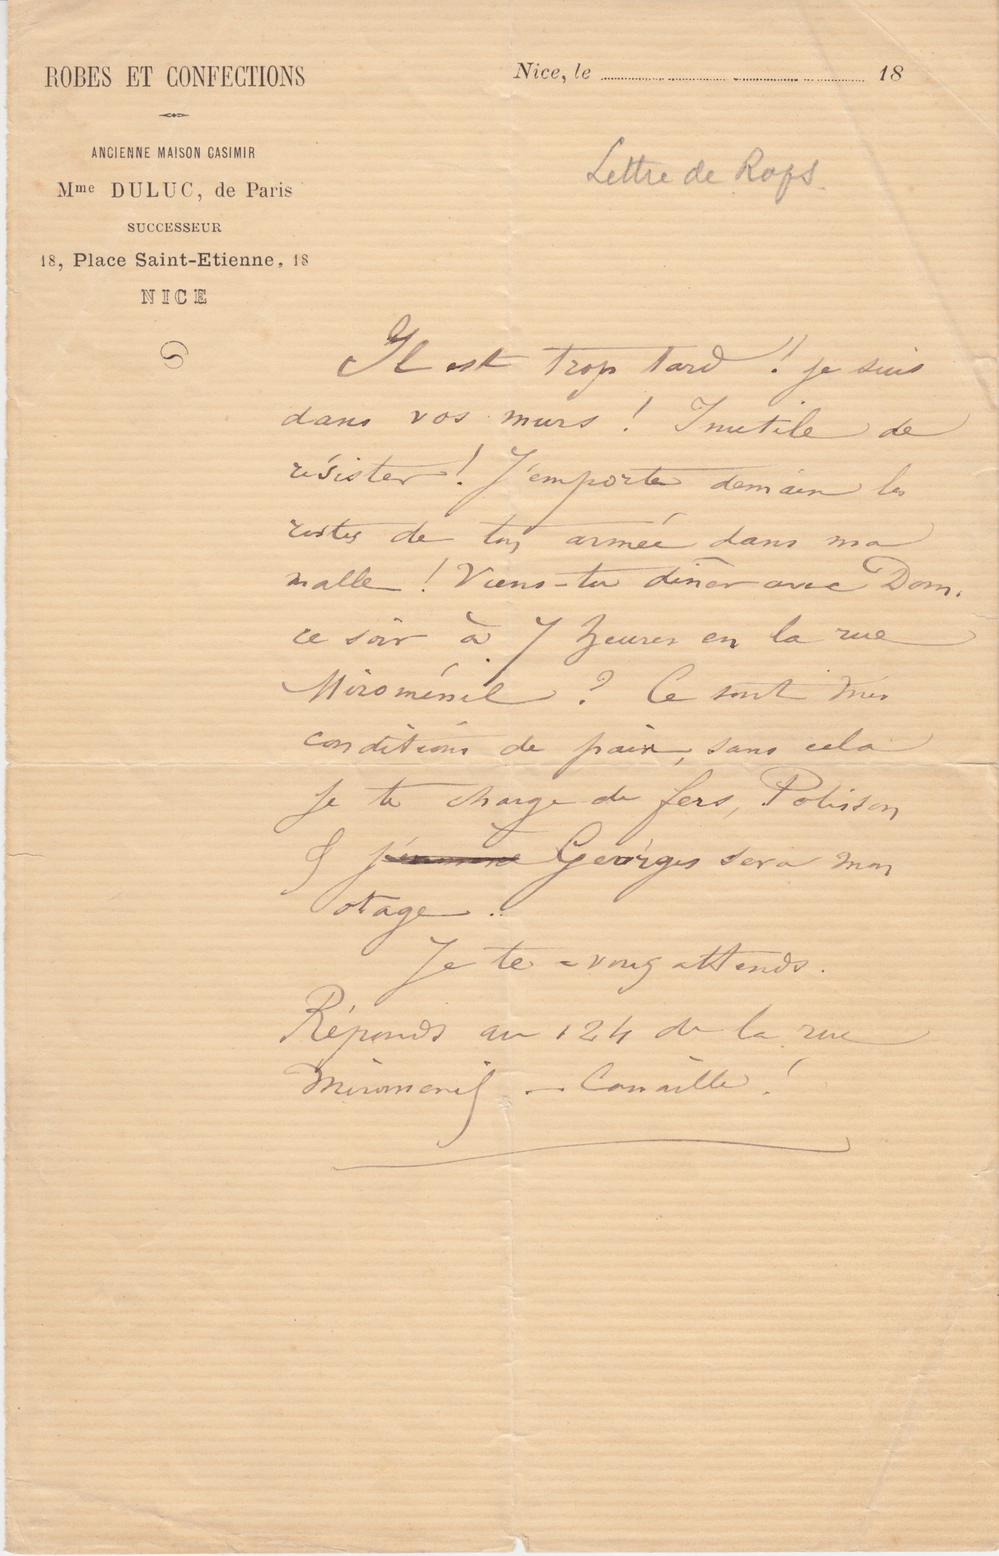 ROBES ET CONFECTIONS
ANCIENNE MAISON CASIMIR
Mme DULUC, de Paris
SUCCESSEUR
18, Place Saint-Etienne, 18
NICE
Nice, le 18
Lettre de Rops.
Il est trop tard !! je suis
dans vos murs ! Inutile de
résister ! J'emporte demain les
restes de ton armée dans ma
malle ! Viens-tu dîner avec Dom.
ce soir à 7 heures en la rue
Miroménil ? Ce sont mes
conditions de paix, sans cela
je te charge de fers, Polisson
& Georges sera mon
otage.
Je te = vous attends.
Réponds au 124 de la rue
Miromenil — Canaille !